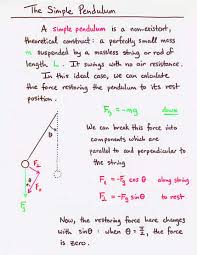 The Simple Pendulum
A simple pendulum is a non-existent,
theoretical construct: a perfectly small mass
m suspended by a massless string or rod of
length L. It swings with no air resistance.
In this ideal case, we can calculate
the force restoring the pendulum to its rest
position.
F₃ = -mg down
We can break this force into
components which are
parallel to and perpendicular to
the string
F₂ = -F₃ cos θ along string
F₁ = -F₃ sin θ to rest
Now, the restoring force here changes
with sin θ : when θ = π/2, the force
is zero.
θ
F₂
F₁
F₃